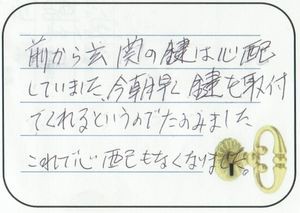 前から玄関の鍵は心配
していました、今朝早く鍵を取付
てくれるというのでたのみました
これで心配もなくなりました。